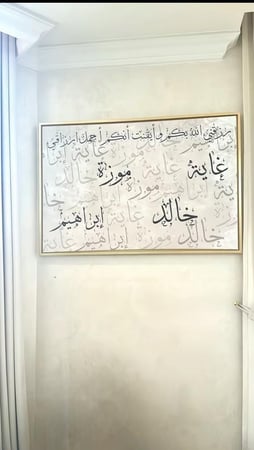 رزقني الله بكم و أيقنت أنكم أجمل ارزاقي
غاية موزة
خالد إبراهيم